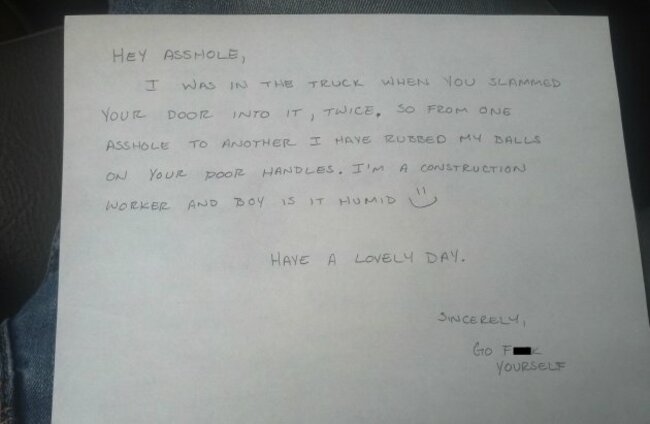 HEY ASSHOLE,
I WAS IN THE TRUCK WHEN YOU SLAMMED
YOUR DOOR INTO IT, TWICE. SO FROM ONE
ASSHOLE TO ANOTHER I HAVE RUBBED MY BALLS
ON YOUR DOOR HANDLES. I'M A CONSTRUCTION
WORKER AND BOY IS IT HUMID
HAVE A LOVELY DAY.
SINCERELY,
GO F K
YOURSELF